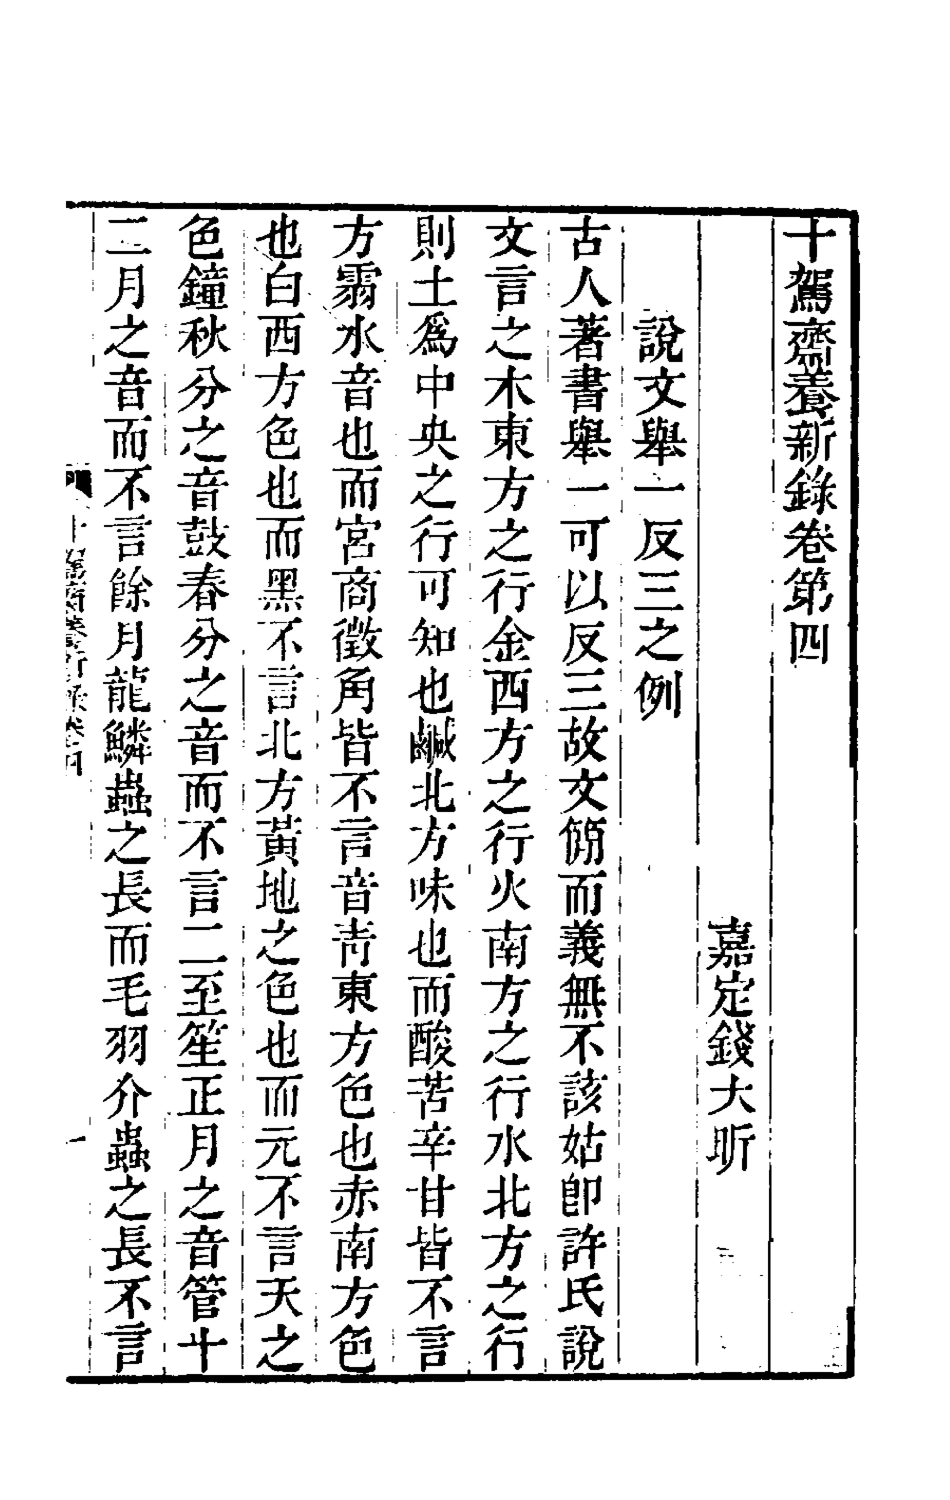 十駕齋養新錄卷第四
嘉定錢大昕
說文舉一反三之例
古人著書舉一可以反三故文簡而義無不該姑卽許氏說
文言之木東方之行金西方之行火南方之行水北方之行
則土爲中央之行可知也鹹北方味也而酸苦辛甘皆不言
方霸水音也而宮商徵角皆不言音靑東方色也赤南方色
也白西方色也而黑不言北方黃地之色也而元不言天之
色鐘秋分之音鼓春分之音而不言二至笙正月之音管十
二月之音而不言餘月龍鱗蟲之長而毛羽介蟲之長不言
十駕齋養新錄卷四
一